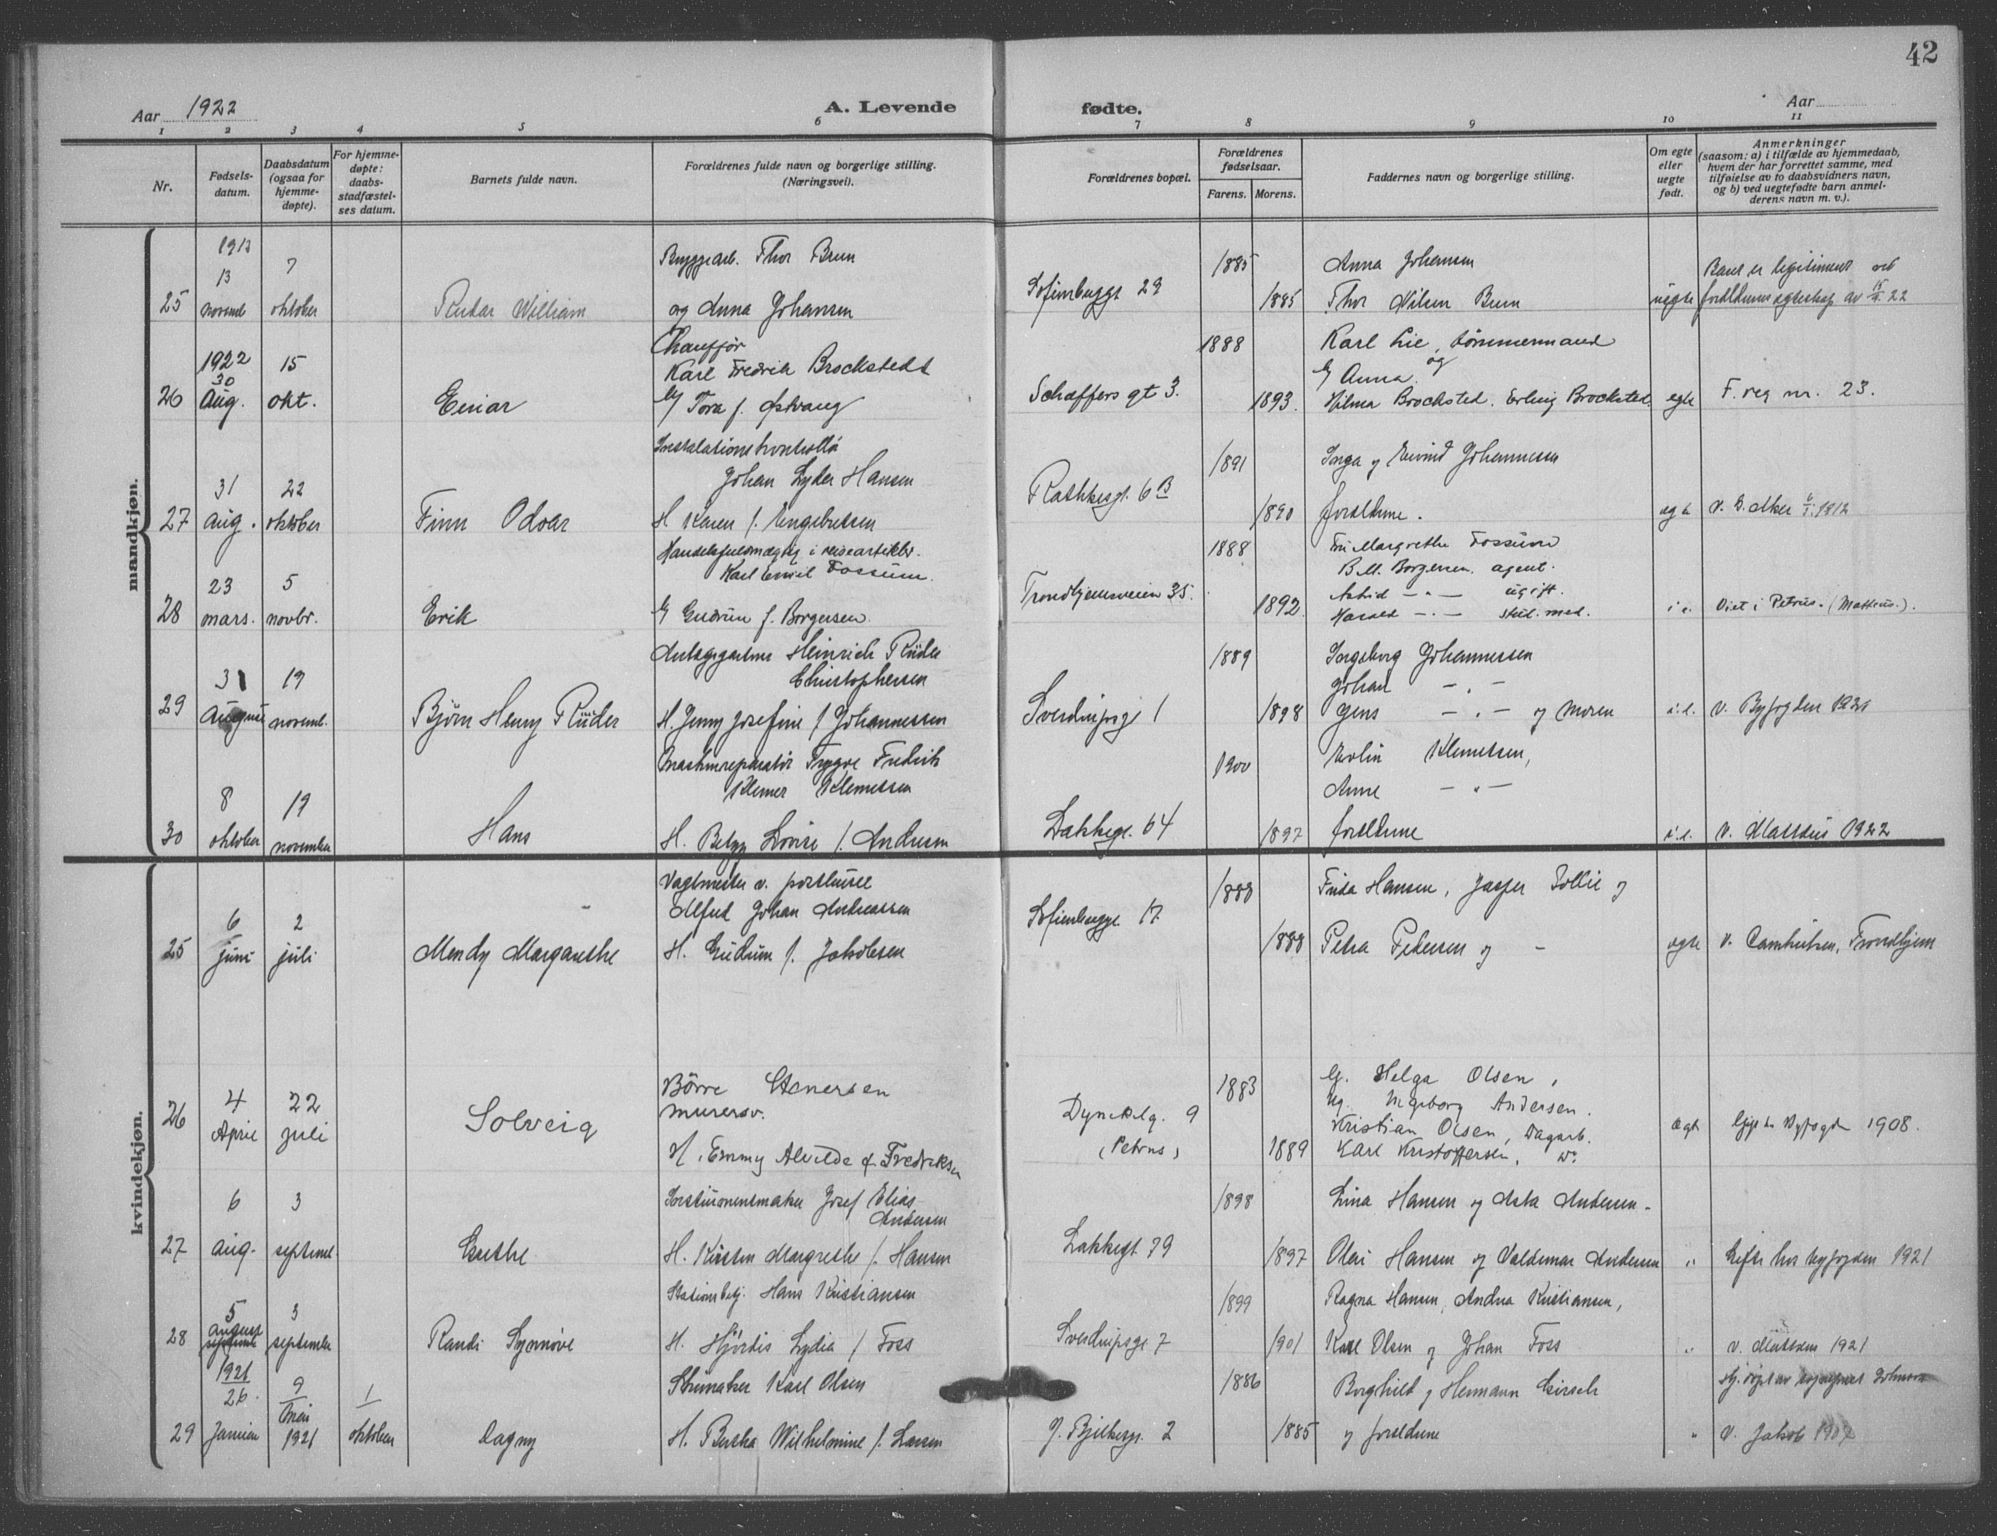 42
Aar 1922
A. Levende fødte.
Aar
1 2 3 4 5 6 7 8 9 10 11
Nr.
Fødsels-
datum.
Daabsdatum
(ogsaa for
hjemme-
døpte).
For hjemme-
døpte:
daabs-
stadfæstel-
ses datum.
Barnets fulde navn.
Forældrenes fulde navn og borgerlige stilling.
(Næringsvei).
Forældrenes bopæl.
Forældrenes
fødselsaar.
Farens. Morens.
Faddernes navn og borgerlige stilling.
Om egte
eller
uegte
født.
Anmerkninger
(saasom: a) i tilfælde av hjemmedaab,
hvem der har forrettet samme, med
tilføielse av to daabsvidners navn,
og b) ved uegtefødte barn anmel-
derens navn m. v.).
mandkjøn.
1913
13 7 Thor Brun 1885 Anna Johansen Barnet er legitimert ved
25 novemb oktober William og Anna Johansen 29 1885 Thor Nilsen Brun uegte forældrenes egteskap av 22
Chauffør
1922 15 Karl Fredrik Brockstedt 1888 Karl Lie, tømmermand
30 og
26 Aug. okt. Einar Tora f. Østvang Schæffers gt 3. 1893. Anna
Hilma Brocksted. Erling Brocksted. egte F. reg nr. 23.
31 22 Johan Lyder Hansen 1891 Inga og Eivind Johannessen
27 aug. oktober Finn Odvar H. Karen f. Engebretsen Rathkesgt. 6 B 1890 forældrene. egte
Handelsfuldmægtig i reiseartikler.
23 5 Karl Emil Fossum. 1888 Fru Margrethe Fossum
B. M. Borgersen, agent.
28 mars. novbr. Erik Gudrun f. Borgersen. Trondhjemsveien 35. 1892. Astrid — " — ugift.
Harald — " — stud. med. i. e. Viet i Petrus. (Mattæus.).
Heinrich Rüder
31 19 Christophersen 1889 Ingeborg Johannessen
Johan — " —
29 August novemb. Bjørn Henry Rüder H. Jenny Josefine f. Johannessen Sverdrupsgt 1 1898 Jens — " — og moren i. e. v. Byfogden
Maskinreparatør Trygve Fredrik
8 19 Klemetsen 1900 Klemetsen,
Anne — " —
30 oktober november Hans H. Lovise f. Andersen Lakkegt. 64 1897 forældrene i. e. v. Mattæus 1922
kvindekjøn.
Vagtmester v. posthuset
6 2 Alfred Johan Andreassen 1888 Frida Hansen, Jasper Tollie og
25 juni juli Mendy Margarethe H. Gudrun f. Jakobsen 17 1888 Petra Pedersen og - egte v. Trondhjem
Børre Stenersen
4 22 murersv. 1883 G. Helga Olsen,
26 April juli Solveig Dynekilg. 9 Ug. Ingeborg Andersen.
(Petrus) Kristian Olsen, Dagarb. Ægt Byfogd 1908.
H. Emmy Alvilde f. Fredriksen 1889 Karl Kristoffersen, do
6 3 Instrumentmaker Josef Elias
Andersen 1898 Lina Hansen og Asta Andersen.
27 aug. septemb. Grethe H. Kirsten Margrethe f. Hansen Lakkegt 79 1897 Olai Hansen og Valdemar Andersen " Gifte hos byfogden 1921
Stationsbetj. Hans Kristiansen
5 3 1899 Ragna Hansen, Andrea Kristiansen,
28 august september Randi Synnøve H. Hjørdis Lydia f. Foss Sverdrupsgt 7 1901 Karl Olsen og Johan Foss " v. Mattæus 1921
1921
26. 9 1 Skomaker Karl Olsen 1886 Borghild og Hermann Hj. døpt av
29 Januar mai 1921 oktober Dagny H. Bertha Wilhelmine f. Larsen J. Bjelkesgt. 2 1885 og forældrene " v. Jakob 1907